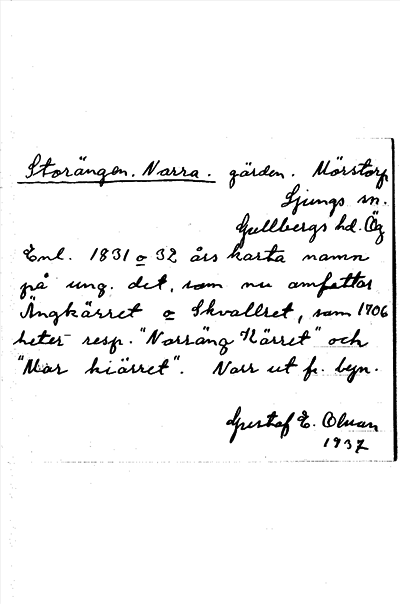 Storängen. Norra. gärden. Mörstorp
Ljungs sn.
Gullbergs hd. Ög
Enl. 1831 o 32 års karta namn
på ung. det, som nu omfattar
Ängkärret o Skvallret, som 1706
heter resp. "Norräng Kärret" och
"Mor kiärret". Norr ut fr. byn.
Gustaf E. Olman
1937